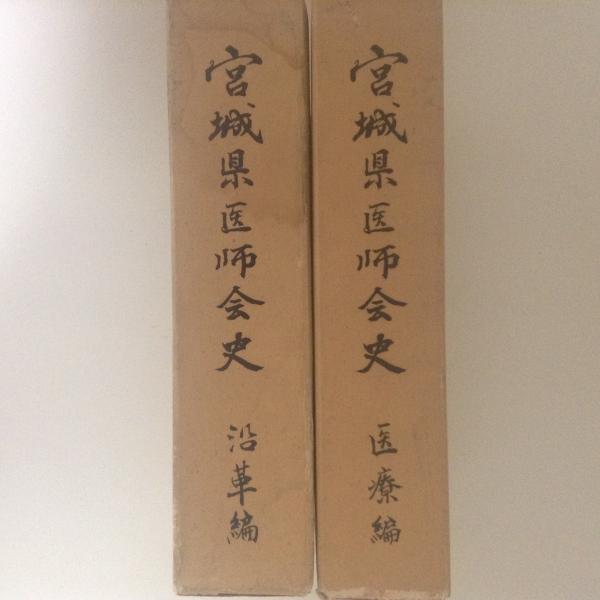 宮城県医師会史 医療編
宮城県医師会史 沿革編